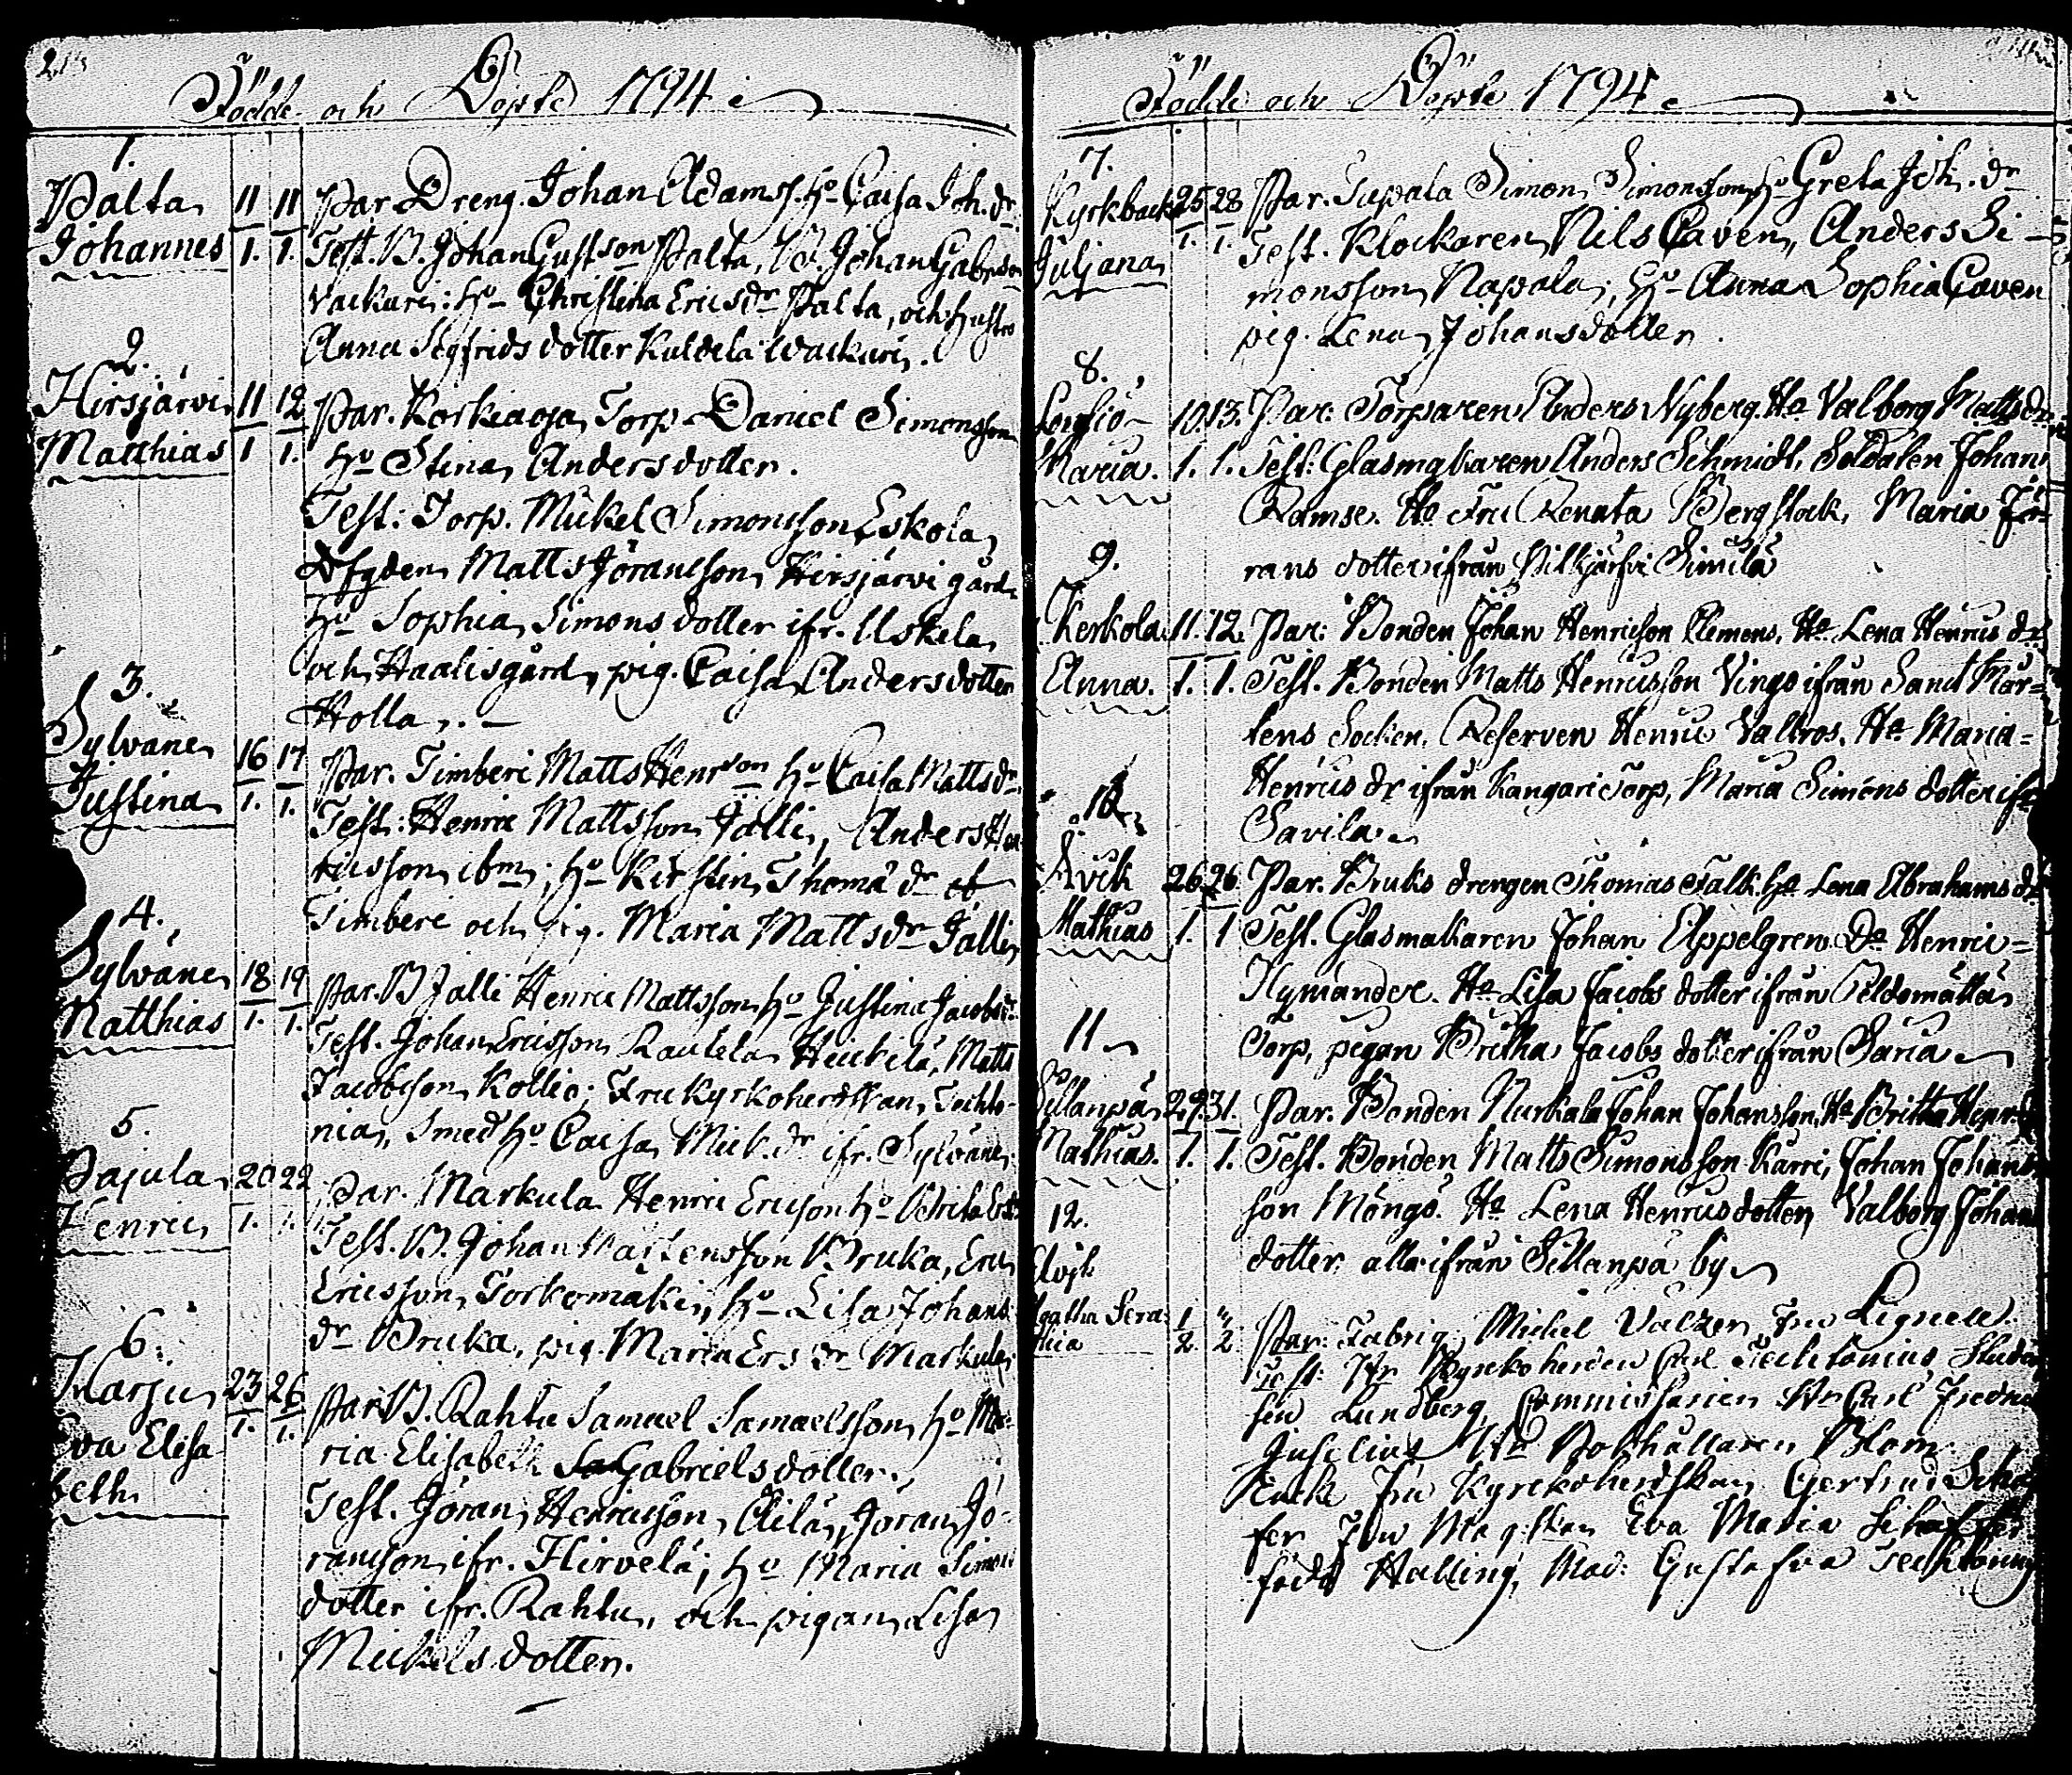 Födde och Döpte 1794
1.
Palta 11 11 Par. Dreng. Johan Adamss. Ho Caisa Joh. dr
Johannes 1. 1. Test. B. Johan Gustson Palta, B. Johan Gabrson
Vackuri: ho Christina Ericsdr Palta, och hustro
Anna Sigfridsdotter Kuldela Wackuri.
2.
Hirsjärvi 11 12 Par. Korkiaoja Torp Daniel Simonsson
Matthias 1 1. ho Stina Andersdotter.
Test: Torp. Mickel Simonsson Eskola,
Matts Jöransson Hirsjärvi gård
ho Sophia Simonsdotter ifr. Uskela
och Haalisgård, pig. Caisa Andersdotter
Holla.
3.
Sylväne 16 17 Par. Timberi Matts Henrson ho Caisa Mattsdr
Justina 1. 1. Test: Henric Mattsson Jalli, Anders Hen
ricsson ibm; ho Kirstin Thomædr
Timberi och pig. Maria Mattsdr Jalli
4.
Sylväne 18 19 Par. B Jalli Henric Mattsson ho Justina Jacobsdr.
Matthias 1. 1. Test. Johan Ericsson Rautela Heickilä, Matts
Jacobsson Kollio; Fru Kyrkoherdskan Techto-
nia, Smed ho Caisa Mick.dr ifr. Sylväne
5.
Pajula 20 22 Par. Markula Henric Ericson ho
Henric 1. 1. Test. B. Johan Mårtensson Bruka, Eric
Ericsson Torkomäki, ho Lisa Johans
dr Bruka, pig. Maria Ersdr Markula
6.
Harju 23 26 Par. B. Rahtu Samuel Samuelsson ho Ma-
Eva Elisa 1. 1. ria Elisabeth Gabrielsdotter.
beth
Test. Jöran Henricsson Äilä, Jöran Jö-
ransson ifr. Hirvelä; ho Maria Simons
dotter ifr. Rahtu, och pigan Lisa
Mickelsdotter.
Födde och Döpte 1794
7.
Kyrkbacka 25 28 Par. Supala Simon Simonsson ho Greta Joh. dr
Juliana 1. 1. Test. Klockaren Nils Caven, Anders Si-
monsson Napala; ho Anna Sophia Caven
pig. Lena Johansdotter.
8.
10 13. Par: Torparen Anders Nyberg. Ha Valborg Mattsdr
Maria. 1. 1. Test: Glasmakaren Anders Schmidt, Soldaten Johan
Ramse. Ha Fru Renata Bergstock, Maria Jö-
rans dotter ifrån Pilkjärfvi Simila
9.
Kerkola 11. 12. Par: Bonden Johan Henricson Klemens, Ha Lena Henrics dr
Anna. 1. 1. Test. Bonden Matts Henricsson Vingo ifrån Sanct Mår-
tens Socken, Reserven Henric Valtros. Ha Maria
Henrics dr ifrån Kangari Torp, Maria Simons dotter ifr
Savila
10
Åvik 26 26 Par. Bruks drengen Thomas Falk. ha Lena Abrahams dr
Mathias 1. 1 Test. Glasmakaren Johan Appelgren Do Henric
Nymander. Ha Lisa Jacobs dotter ifrån Peldomätta
Torp, pigan Britha Jacobs dotter ifrån Saria
11
Sillanpä 29 31. Par. Bonden Nurkala Johan Johansson, Ha Britha Henr. dr
Mathias. 1. 1. Test. Bonden Matts Simonsson Karri, Johan Johans
son Möngö. Ha Lena Henricsdotter, Valborg Johans
dotter alla ifrån Sillanpä by
12.
Åvik
Agatha Sera: 1 " Par: Fabriq. Michel Valzer, Fru Lignell.
phia 2. 2. Test: Hr Kyrckoherden Carl Techtonius Studen
ten Lundberg Commissarien Hr Carl Fredric
Juselius Hr Bokhållaren Blom
Enck. Fru Kyrckoherdskan Gertrud Schæf
fer Fru Mag:skan Eva Maria Schæffer
född Halling, Mad: Gustafva Techtonius